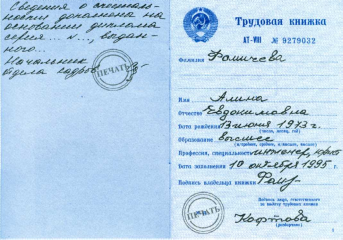 Сведения о специаль-
ности дополнена на
основании диплома
серия... №..., выдан-
ного...
Начальник
отдела кадров
ПЕЧАТЬ
Трудовая книжка
АТ-VIII № 9279032
Фамилия Фомичева
Имя Алина
Отчество Евдокимовна
Дата рождения 13 июня 1973 г.
(число, месяц, год)
Образование высшее
Профессия, специальность инженер,
Дата заполнения 10 октября 1995 г.
Подпись владельца книжки Фом
Подпись лица, ответственного
за выдачу трудовых книжек
ПЕЧАТЬ
Кофтова
(разборчиво)